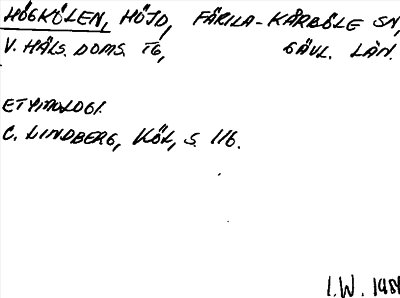 HÖGKÖLEN, HÖJD, FÄRILA-KÅRBÖLE SN,
V. HÄLS. DOMS. TG, GÄVL. LÄN.
ETYMOLOGI.
C. LINDBERG, KÖL, S. 116.
I.W. 1981